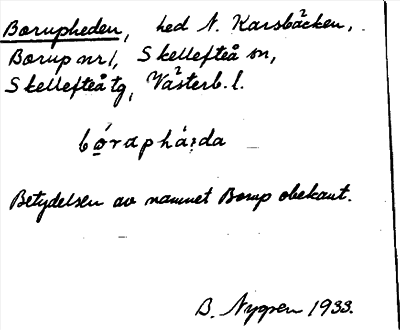 Borupheden, hed N. Karsbäcken,
Borup nr 1, Skellefteå sn,
Skellefteå tg, Västerb. l.
bó̱raphà:da
Betydelsen av namnet Borup obekant.
B. Nygren 1933.